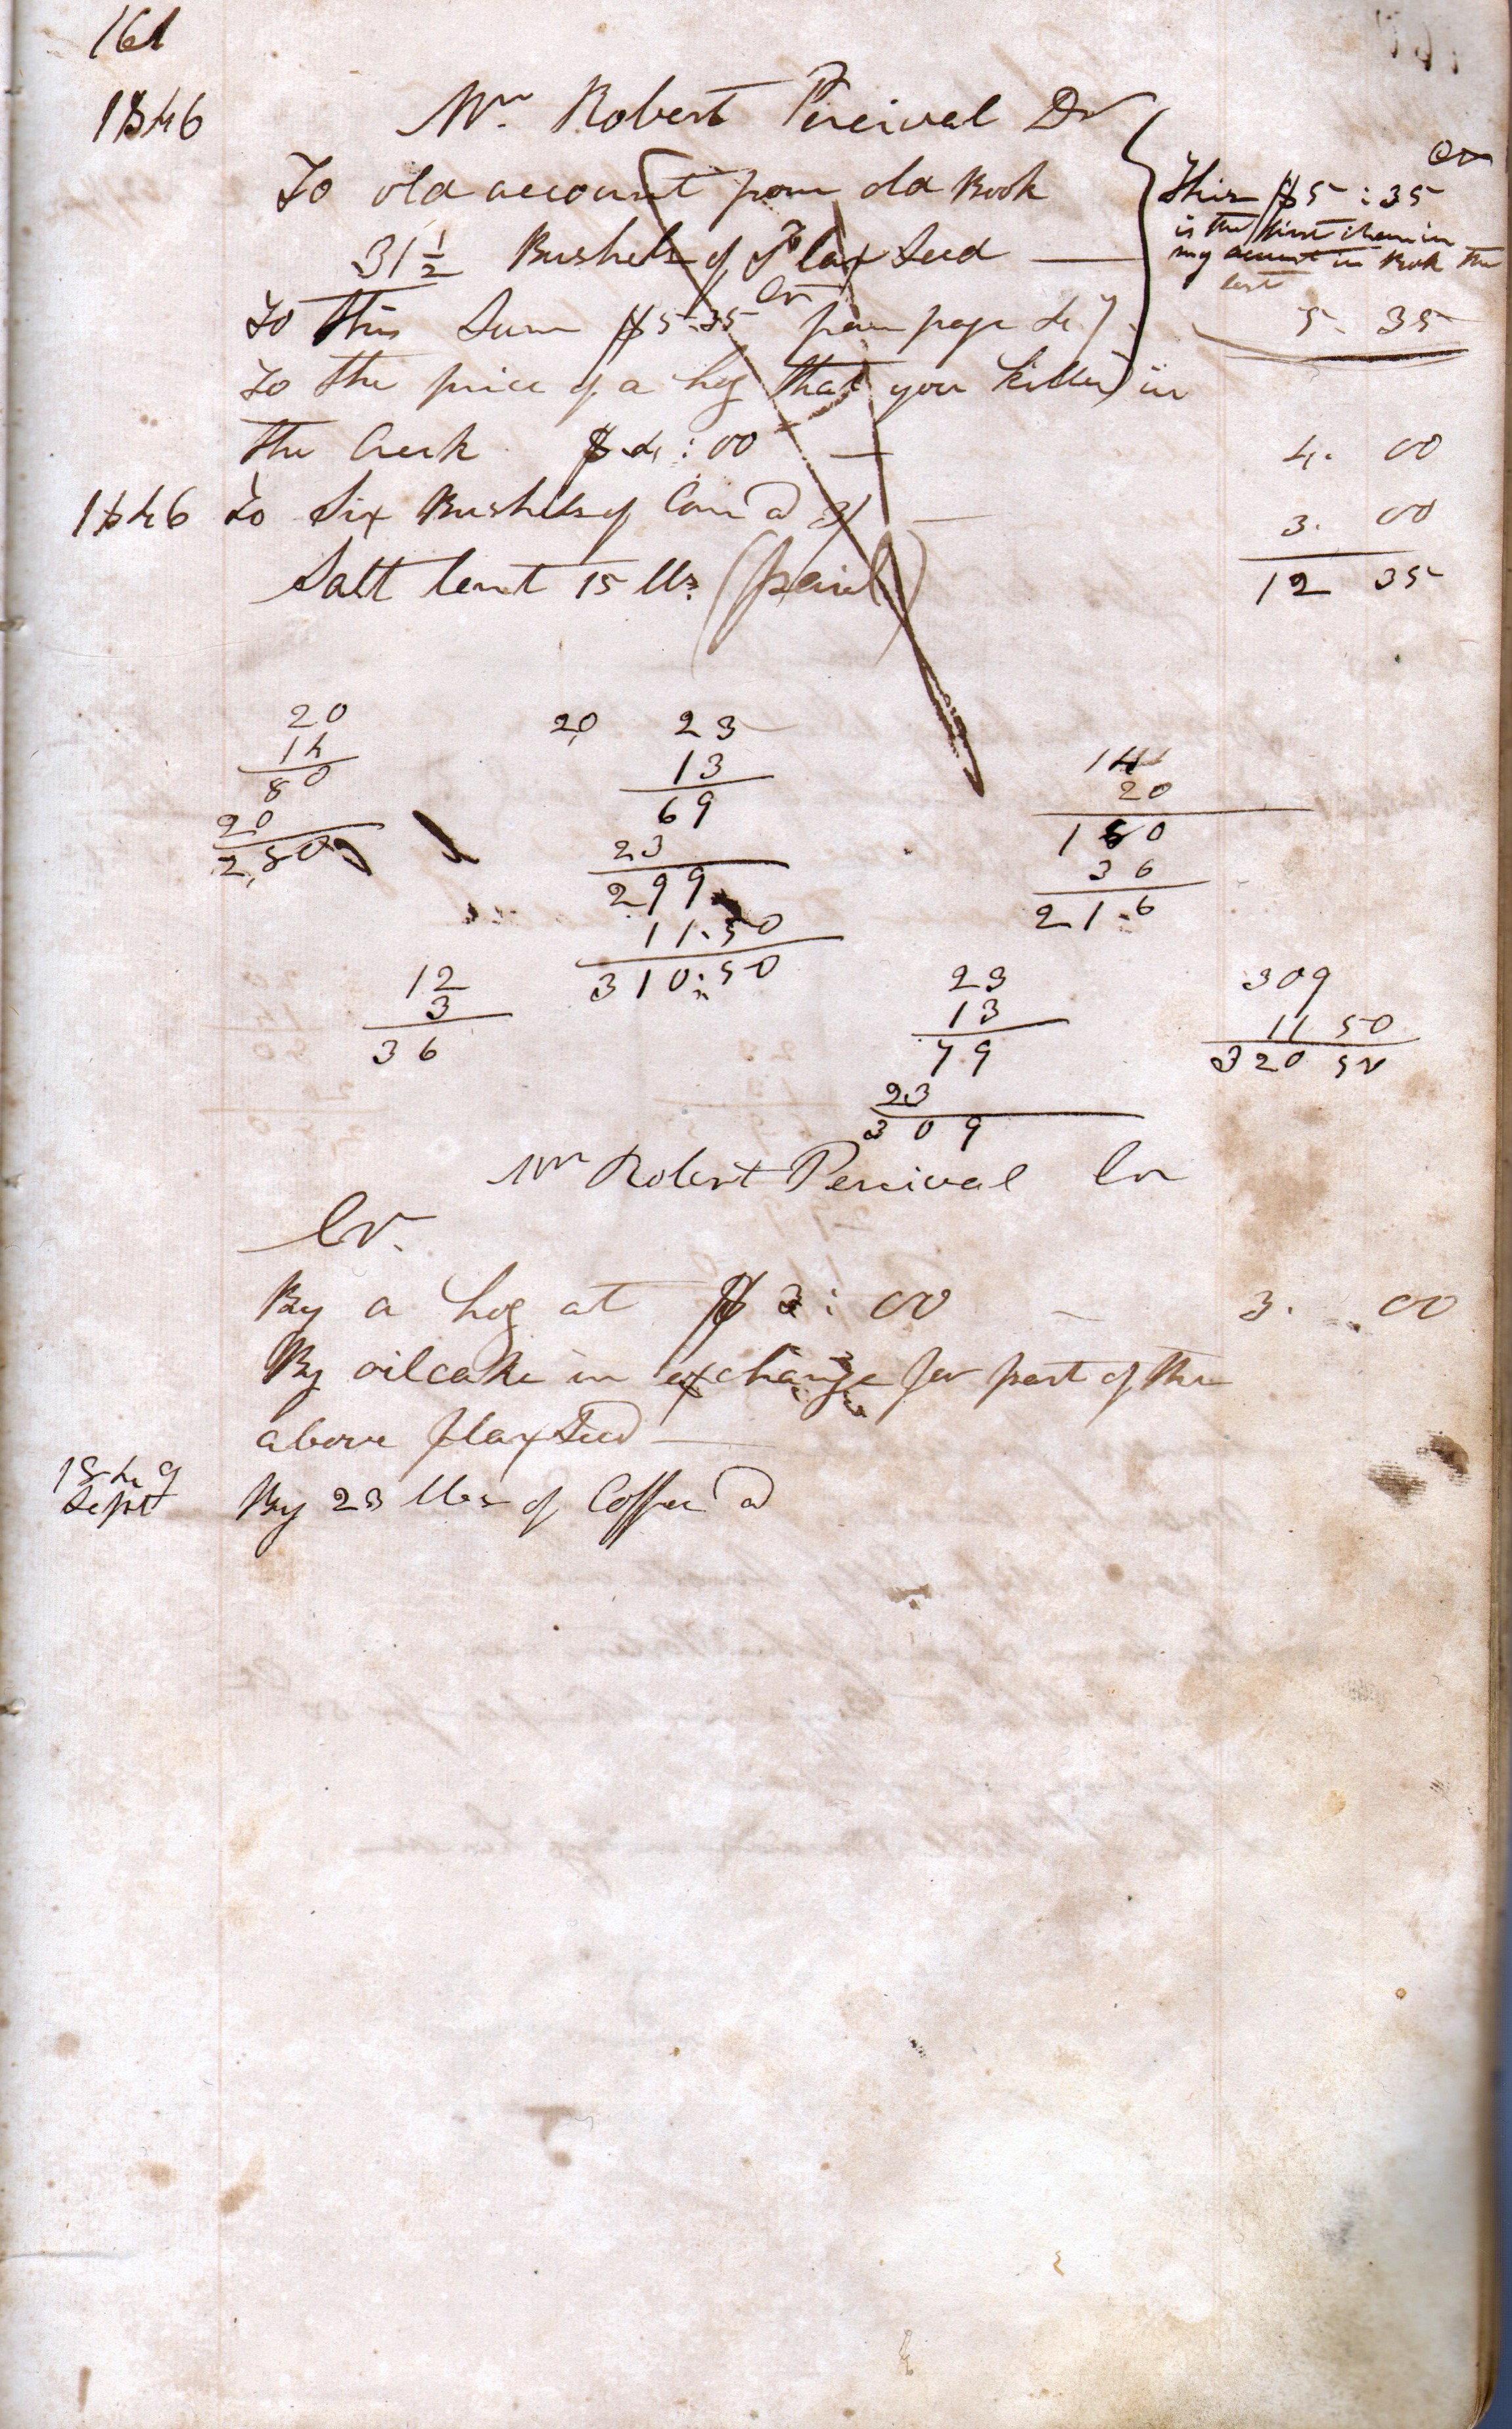 161
1846
Mr. Robert Percival Dr
To old account from old Book
31 1/2 Bushels of Flax Seed
cr
This $5:35
is the first item in
my account in Book the
last
To This Sum $5.35 from page 47
5. 35
To the price of a hog that you killed in
the Creek $4:00 4. 00
1846 To Six Bushels of Corn @ 3/ 3. 00
12 35
Salt lent 15 lbs (paid)
20
14
80
20
2,80
20 23
13
69
23
299
11.50
310:50
144
20
180
36
21.6
12
3
36
23
13
79
23
309
309
11 50
320 50
Mr Robert Percival Cr
Cr.
By a hog at $3:00 3. 00
By oilcake in exchange for part of the
above flax Seed
1849
Sept By 23 lbs of Coffee @